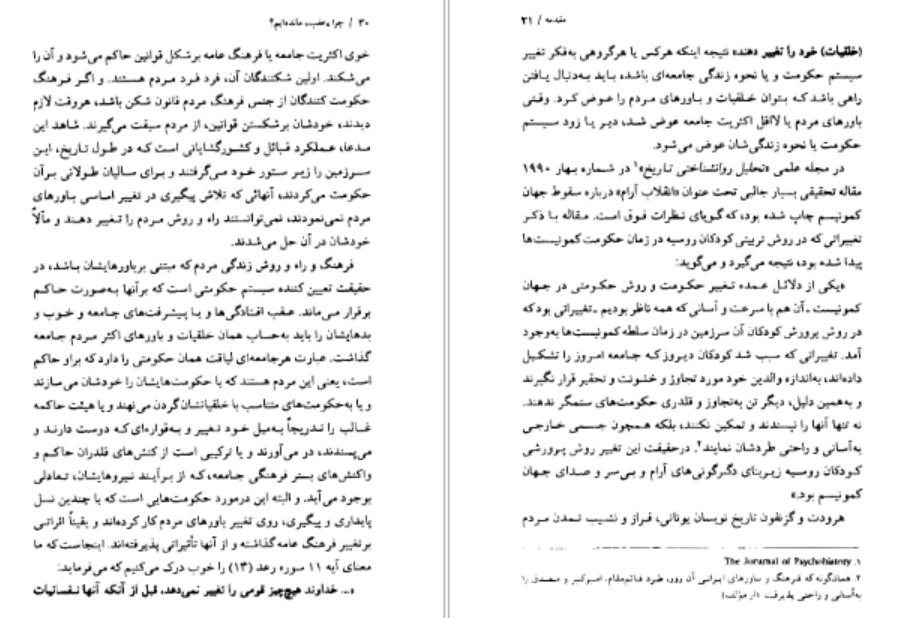 ۳۰ / چرا عقب مانده‌ایم؟
خوی اکثریت جامعه یا فرهنگ عامه برشکل قوانین حاکم می‌شود و آن را
می‌شکند. اولین شکنندگان آن، فرد فرد مردم هستند. و اگر فرهنگ
حکومت کنندگان از جنس فرهنگ مردم قانون شکن باشد، هروقت لازم
دیدند، خودشان برشکستن قوانین، از مردم سبقت می‌گیرند. شاهد این
مدعا، عملکرد قبائل و کشورگشایانی است که در طول تاریخ، این
سرزمین را زیر ستور خود می‌گرفتند و برای سالیان طولانی برآن
حکومت می‌کردند، آنهائی که تلاش پیگیری در تغییر اساسی باورهای
مردم نمی‌نمودند، نمی‌توانستند راه و روش مردم را تغییر دهند و مآلاً
خودشان در آن حل می‌شدند.
فرهنگ و راه و روش زندگی مردم که مبتنی برباورهایشان باشد، در
حقیقت تعیین کننده سیستم حکومتی است که برآنها به‌صورت حاکم
برقرار می‌ماند. عقب افتادگی‌ها و یا پیشرفت‌های جامعه و خوب و
بدهایشان را باید به‌حساب همان خلقیات و باورهای اکثر مردم جامعه
گذاشت. عبارت هرجامعه‌ای لیاقت همان حکومتی را دارد که براو حاکم
است، یعنی این مردم هستند که یا حکومت‌هایشان را خودشان می‌سازند
و یا به‌حکومت‌های متناسب با خلقیاتشان گردن می‌نهند و یا هیئت حاکمه
غالب را تدریجاً به‌میل خود تغییر و به‌قواره‌ای که دوست دارند و
می‌پسندند، در می‌آورند و یا ترکیبی است از کنش‌های قلدران حاکم و
واکنش‌های بستر فرهنگی جامعه، که از برآیند نیروهایشان، تعادلی
بوجود می‌آید. و البته این درمورد حکومت‌هایی است که با چندین نسل
پایداری و پیگیری، روی تغییر باورهای مردم کار کرده‌اند و یقیناً اثراتی
برتغییر فرهنگ عامه گذاشته و از آنها تأثیراتی پذیرفته‌اند. اینجاست که ما
معنای آیه ۱۱ سوره رعد (۱۳) را خوب درک می‌کنیم که می‌فرماید:
«... خداوند هیچ‌چیز قومی را تغییر نمی‌دهد، قبل از آنکه آنها نفسانیات
مقدمه / ۳۱
(خلقیات) خود را تغییر دهند» نتیجه اینکه هرکس یا هرگروهی به‌فکر تغییر
سیستم حکومت و یا نحوه زندگی جامعه‌ای باشد، باید به‌دنبال یافتن
راهی باشد که بتوان خلقیات و باورهای مردم را عوض کرد. وقتی
باورهای مردم یا لااقل اکثریت جامعه عوض شد، دیر یا زود سیستم
حکومت یا نحوه زندگی‌شان عوض می‌شود.
در مجله علمی «تحلیل روانشناختی تاریخ»۱ در شماره بهار ۱۹۹۰
مقاله تحقیقی بسیار جالبی تحت عنوان «انقلاب آرام» درباره سقوط جهان
کمونیسم چاپ شده بود، که گویای نظرات فوق است. مقاله با ذکر
تغییراتی که در روش تربیتی کودکان روسیه در زمان حکومت کمونیست‌ها
پیدا شده بود، نتیجه می‌گیرد و می‌گوید:
«یکی از دلائل عمده تغییر حکومت و روش حکومتی در جهان
کمونیست ـ آن هم با سرعت و آسانی که همه ناظر بودیم ـ تغییراتی بود که
در روش پرورش کودکان آن سرزمین در زمان سلطه کمونیست‌ها به‌وجود
آمد. تغییراتی که سبب شد کودکان دیروز که جامعه امروز را تشکیل
داده‌اند، به‌اندازه والدین خود مورد تجاوز و خشونت و تحقیر قرار نگیرند
و به‌همین دلیل، دیگر تن به‌تجاوز و قلدری حکومت‌های ستمگر ندهند.
نه تنها آنها را نپسندند و تمکین نکنند، بلکه همچون جسمی خارجی
به‌آسانی و راحتی طردشان نمایند۲. درحقیقت این تغییر روش پرورشی
کودکان روسیه زیربنای دگرگونی‌های آرام و بی‌سر و صدای جهان
کمونیسم بود.»
هرودت و گزنفون تاریخ نویسان یونانی، فراز و نشیب تمدن مردم
۱. The Jorurnal of Psychohiatory
۲. همانگونه که فرهنگ و باورهای ایرانی آن روز، طرد قائم‌مقام، امیرکبیر و مصدق را
به‌آسانی و راحتی پذیرفت (از مؤلف)